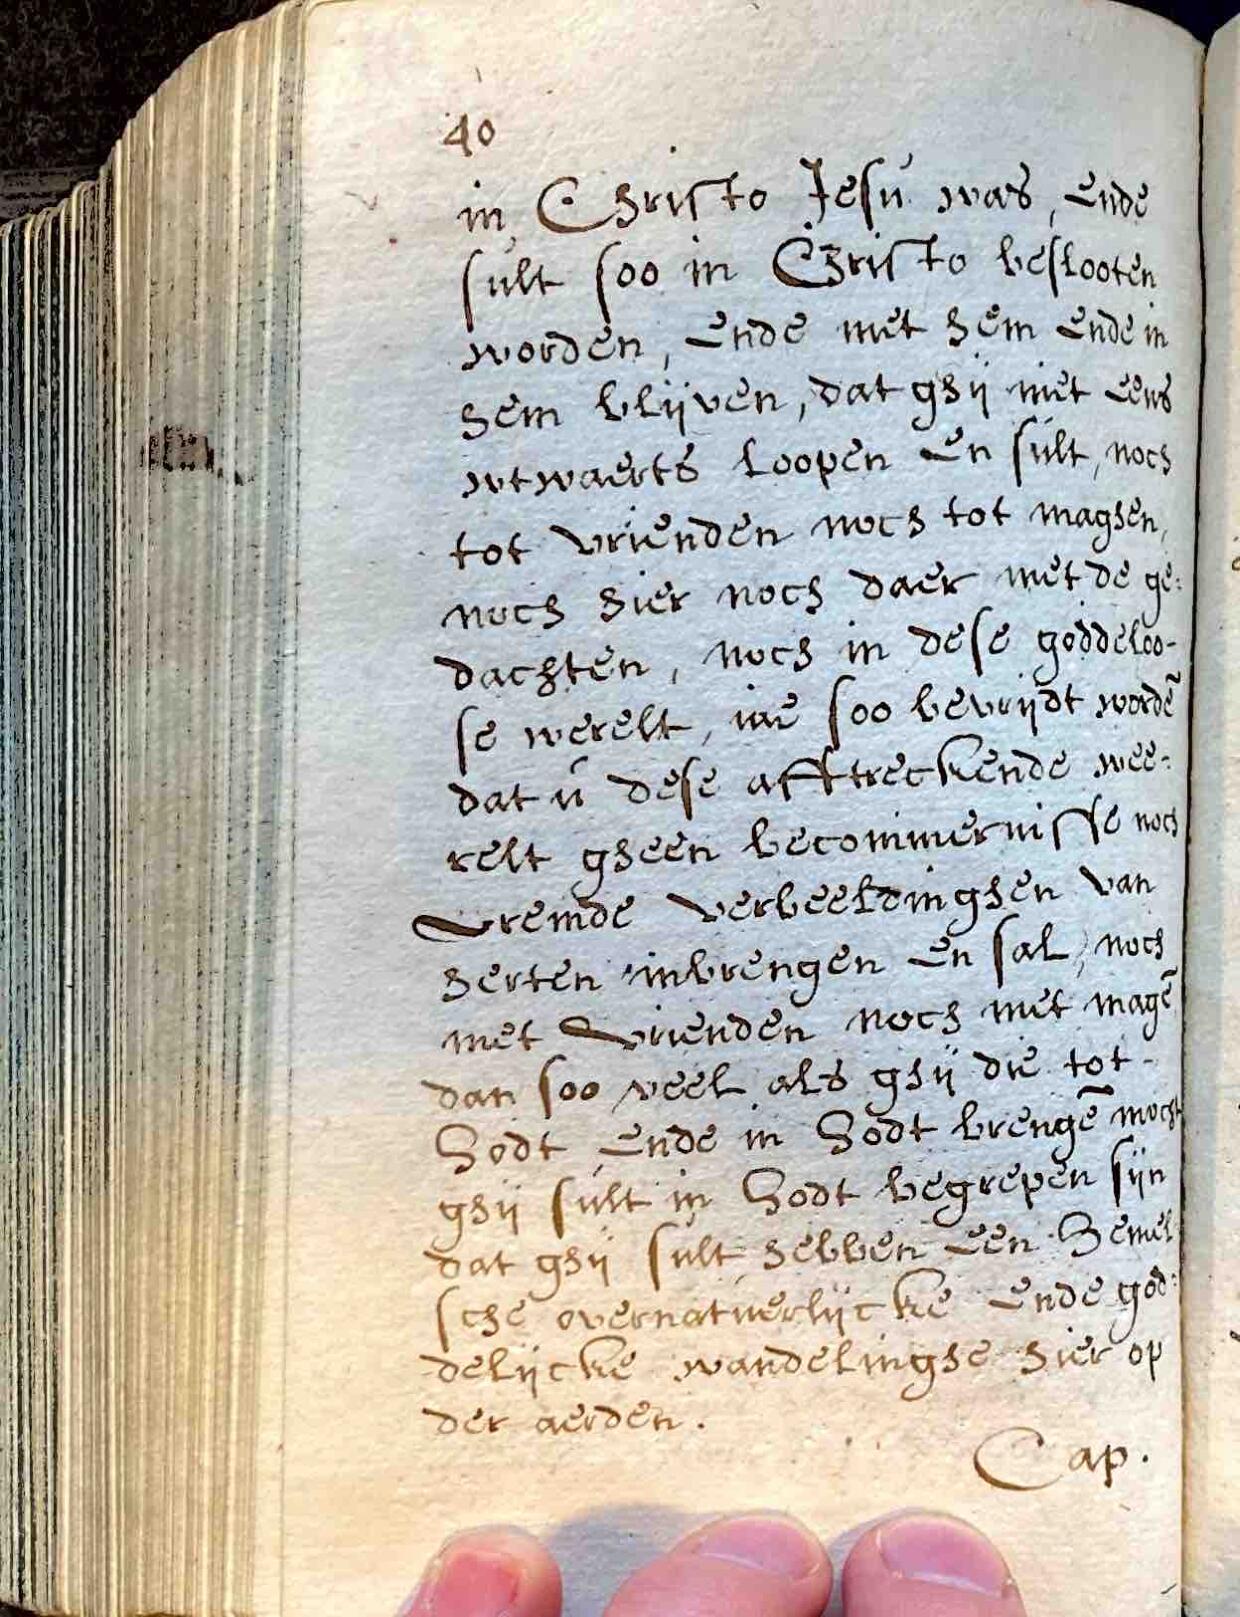 40
in Christo Jesu was, ende
sult soo in Christo beslooten
worden, ende met hem ende in
hem blijven, dat ghij niet eens
wtwaerts loopen en sult, noch
tot vrienden noch tot maghen,
noch hier noch daer met de ge:
dachten, noch in dese goddeloo-
se werelt, iae soo bevrijdt wordē
dat u dese afftreckende wee:
relt gheen becommernisse noch
vremde verbeeldinghen van
herten inbrengen en sal, noch
met vrienden noch met magē
dan soo veel als ghij die tot-
Godt ende in Godt brengē mocht
ghij sult in Godt begrepen sijn
dat ghij sult hebben een Hemel
sche overnatuerlijcke ende god:
delijcke wandelinghe hier op
der aerden.
Cap.